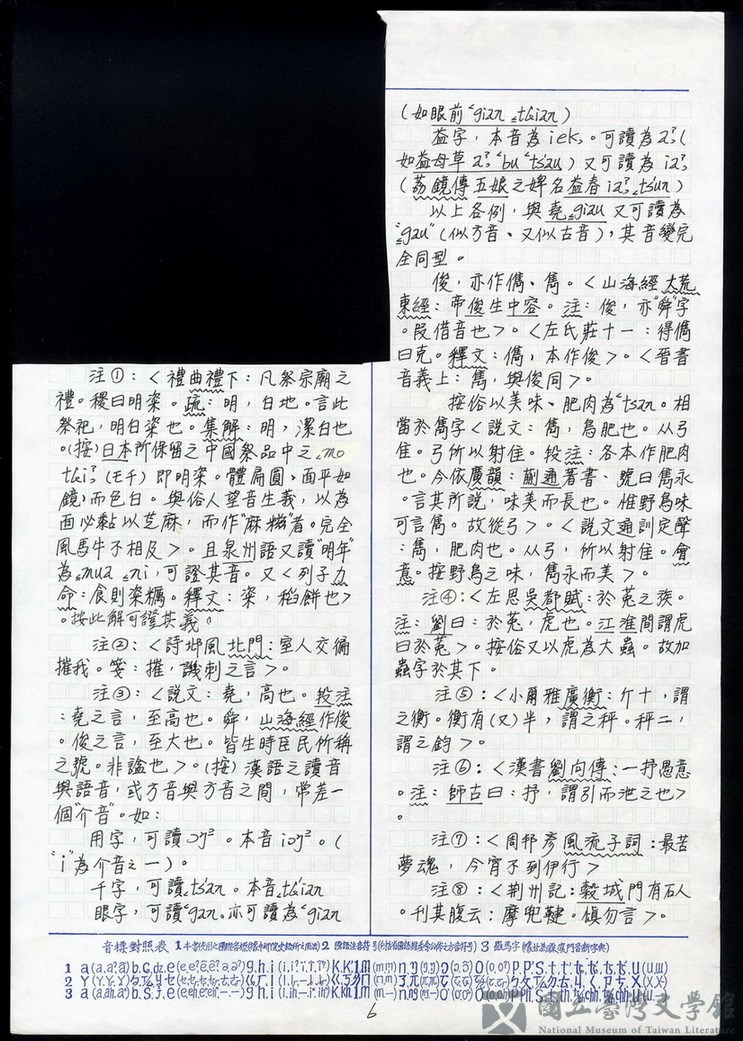 注①：<禮曲禮下：凡祭宗廟之
禮。稷曰明粢。疏：明，白地。言此
祭祀，明白粢也。集解：明，潔白也
。(按)日本所保留之中國祭品中之
(モチ)即明粢。體扁圓、面平如
鏡，而色白。與俗人望音生義，以為
面必黏以芝麻，而作"麻糍"者。完全
風馬牛不相及>。且泉州語又讀"明年"
為 mua ni，可證其音。又<列子力
命：食則粢糲。釋文：粢，稻餅也>
。按此解可證其義。
注②：<詩邶風北門：室人交偏
摧我。箋：摧，譏刺之言>。
注③：<說文：堯，高也。段注
：堯之言，至高也。舜，山海經作俊
。俊之言，至大也。皆生時臣民所稱
之號。非謚也>。(按)漢語之讀音
與語音，或方音與方音之間，常差一
個"介音"。如：
用字，可讀ɔŋ²。本音iɔŋ²。(
"i"為介音之一)。
千字，可讀 ts'an。本音
眼字，可讀'gan。亦可讀為'gian
(如眼前'gian
益字，本音為iek。可讀為a?(
如益母草a? 'bu 'ts'au)又可讀為ia?
(荔鏡傳五娘之婢名益春ia? ts'un)
以上各例，與堯 giau又可讀為
"gau"(似方音、又似古音)，其音變完
全同型。
俊，亦作儁、雋。<山海經大荒
東經：帝俊生中容。注：俊，亦"舜"字
。段借音也>。<左氏莊十一：得儁
曰克。釋文：儁，本作俊>。<晉書
音義上：雋，與俊同>。
按俗以美味、肥肉為'tsan。相
當於雋字<說文：雋，鳥肥也。从弓
隹。弓所以射隹。段注：各本作肥肉
也。今依廣韻：蒯通著書、號曰雋永
。言其所說，味美而長也。惟野鳥味
可言雋。故從弓>。<說文通訓定聲
：雋，肥肉也。从弓，所以射隹。會
意。按野鳥之味，雋永而美>。
注④：<左思吳都賦：於菟之族。
注：劉曰：於菟，虎也。江淮間謂虎
曰於菟>。按俗又以虎為大蟲。故加
蟲字於其下。
注⑤：<小爾雅廣衡：斤十，謂
之衡。衡有(又)半，謂之秤。秤二，
謂之鈞>。
注⑥：<漢書劉向傳：一抒愚意
。注：師古曰：抒，謂引而泄之也>
。
注⑦：<周邦彥風流子詞：最苦
夢魂，今宵不到伊行>
注⑧：<荆州記：穀城門有石人
。刊其腹云：摩兜鞬。慎勿言>。
音標對照表
6
國立臺灣文學館
National Museum of Taiwan Literature